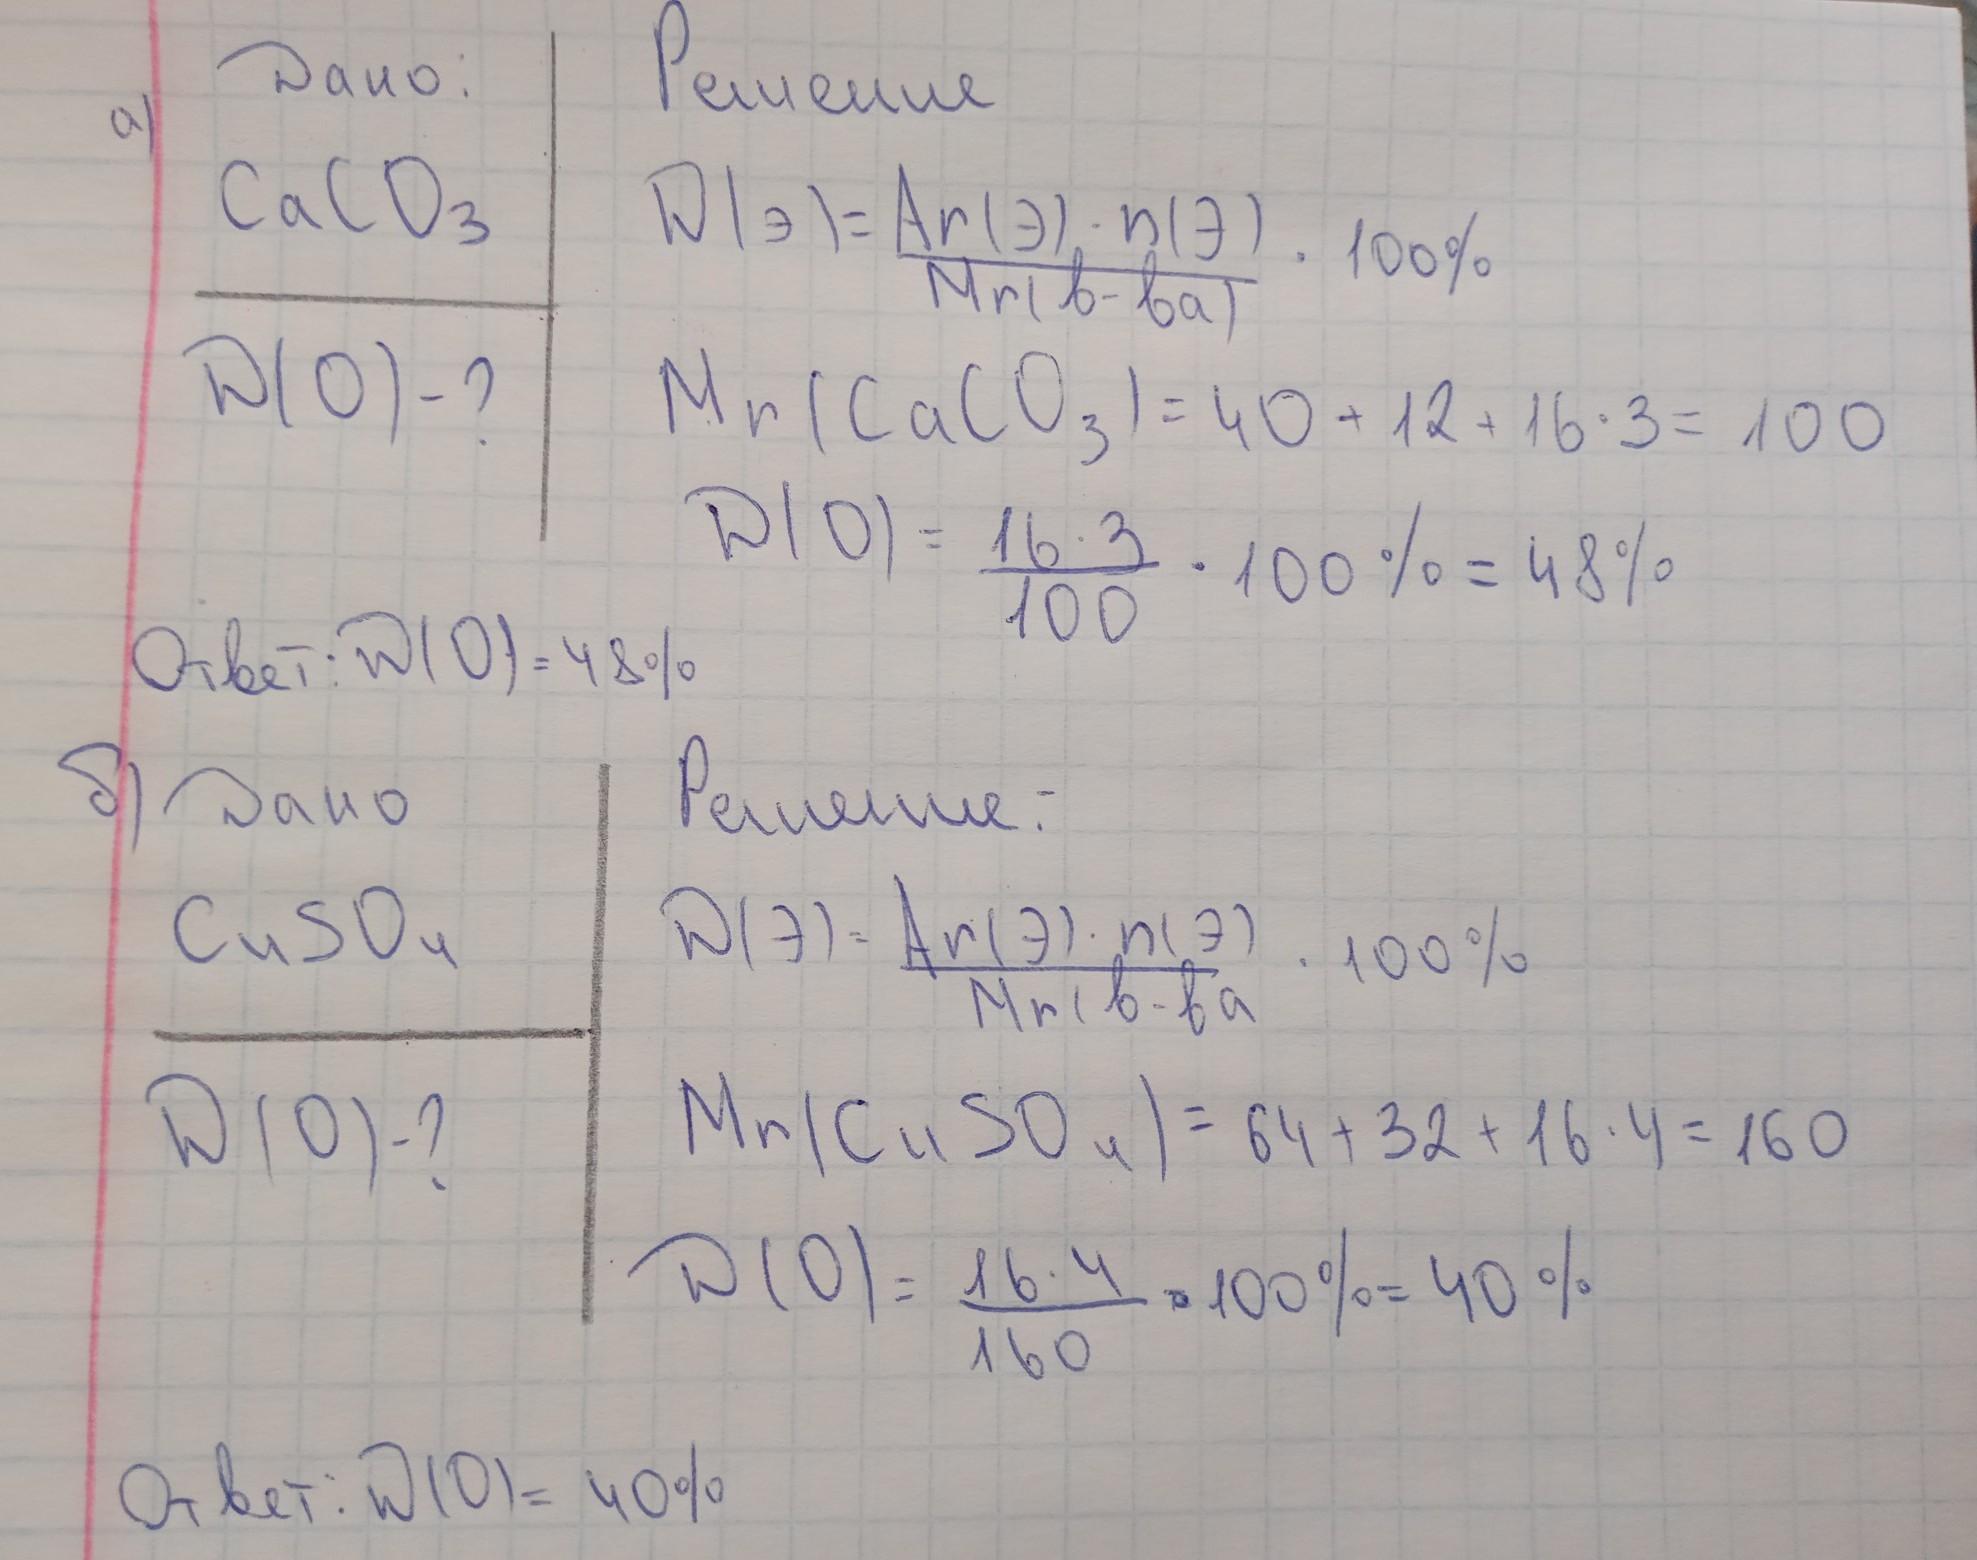 а) Дано:
CaCO₃
W(O)-?
Решение
W(э) = Ar(Э)·n(Э) / Mr(в-ва) · 100%
Mr(CaCO₃) = 40 + 12 + 16·3 = 100
W(O) = 16·3 / 100 · 100% = 48%
Ответ: W(O) = 48%
б) Дано
CuSO₄
W(O)-?
Решение:
W(Э) = Ar(Э)·n(Э) / Mr(в-ва · 100%
Mr(CuSO₄) = 64 + 32 + 16·4 = 160
W(O) = 16·4 / 160 · 100% = 40%
Ответ: W(O) = 40%